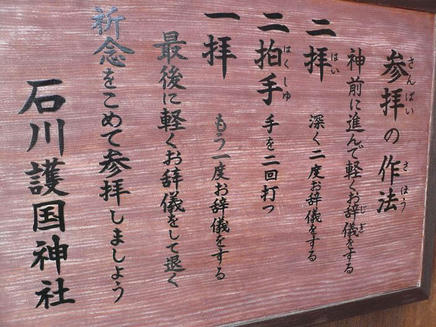 参拝の作法
さんぱい さほう
神前に進んで軽くお辞儀をする
じぎ
二拝 深く二度お辞儀をする
はい
二拍手 手を二回打つ
はくしゅ
一拝 もう一度お辞儀をする
最後に軽くお辞儀をして退く
祈念をこめて参拝しましょう
石川護国神社